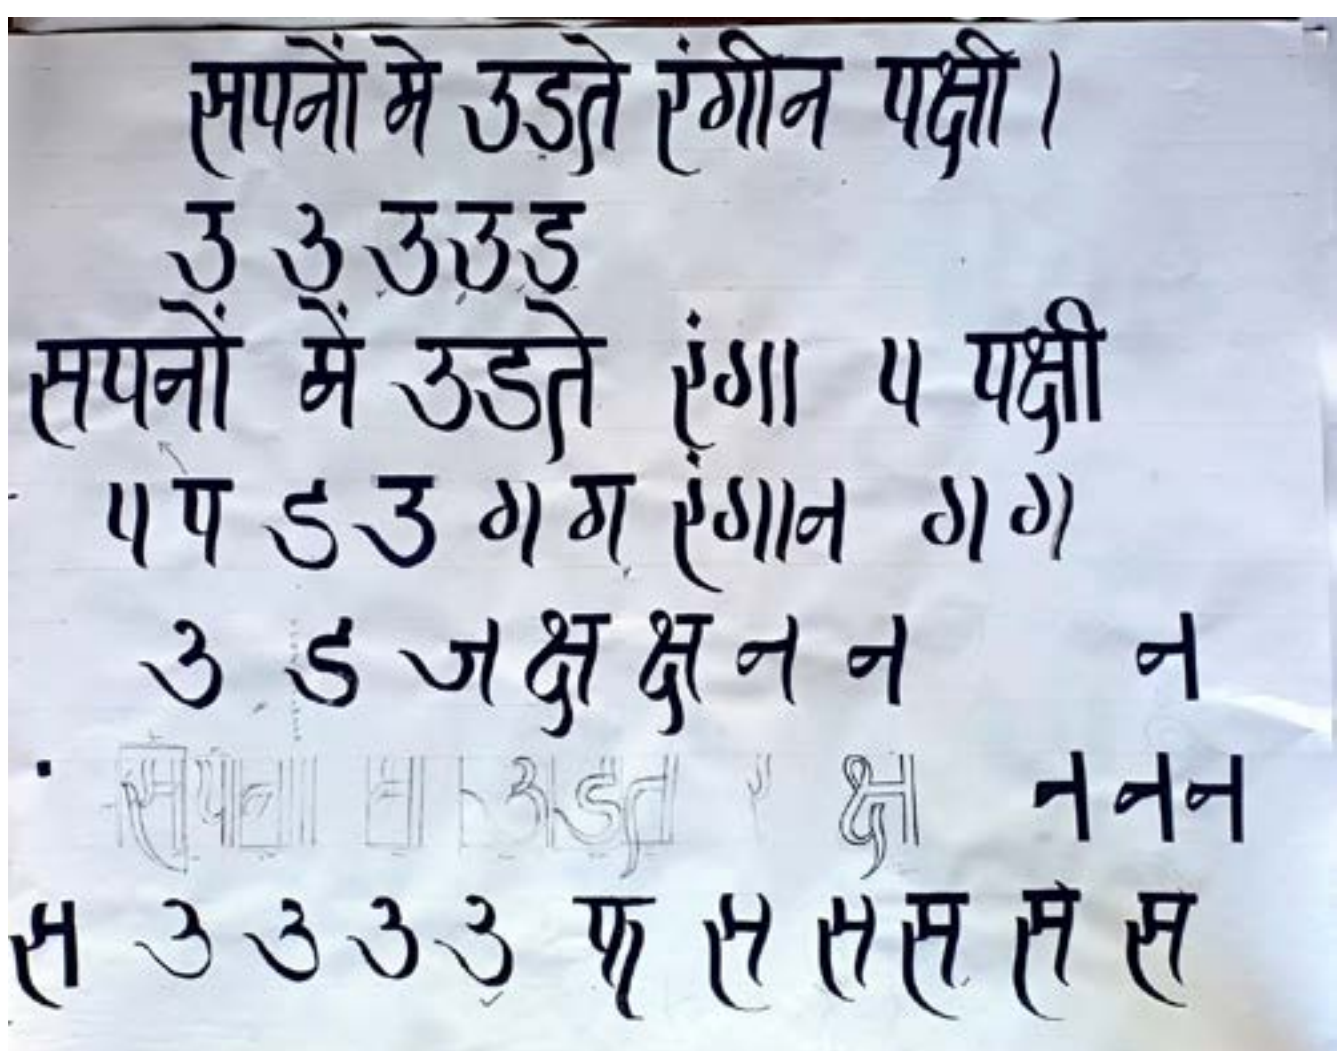 सपनों मे उड़ते रंगीन पक्षी।
उ उ उ उ ड
सपनों में उडते रंगा प पक्षी
प प ड उ ग ग रंगान ग ग
उ ड ज क्ष क्ष न न न
क्ष न न न
स उ उ उ उ फ स स स स स